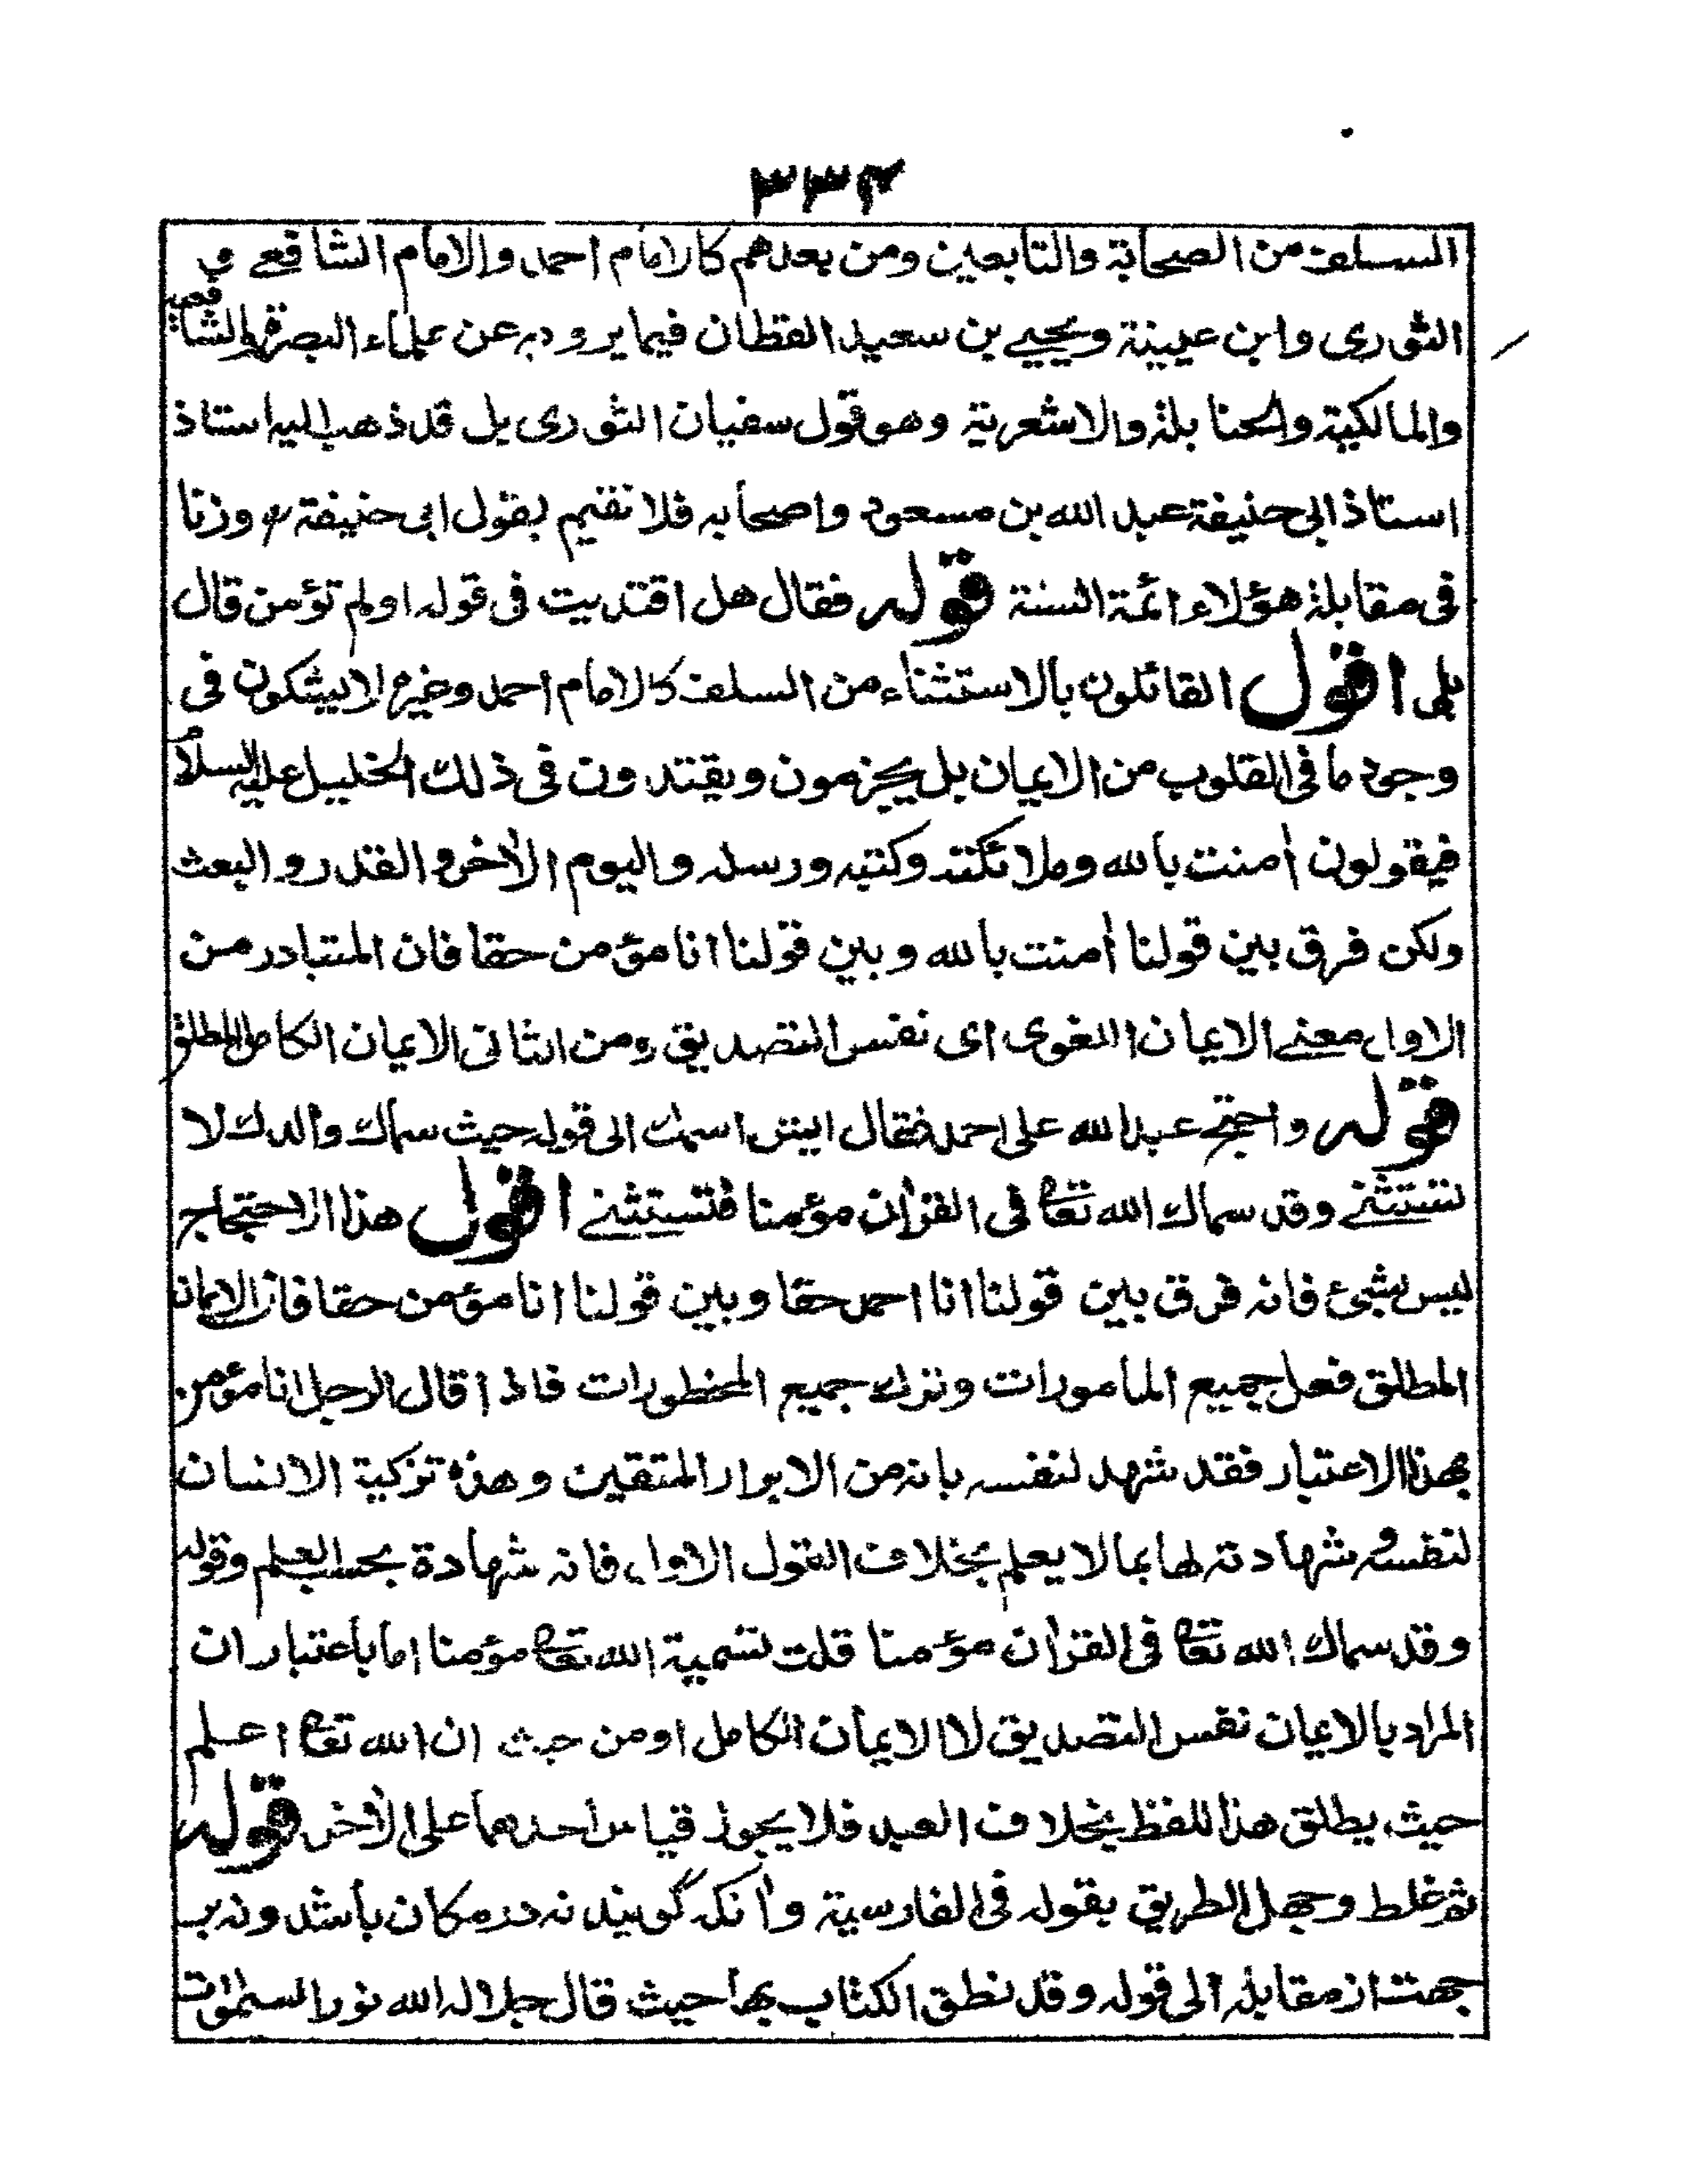 ٣٣٤
السلف من الصحابة والتابعين ومن بعدهم كالامام احمد والامام الشافعے و
الثوری وابن عيينة ويحيے بن سعيد القطان فيما يروى به عن علماء البصرة والشافعية
والمالكية والحنابلة والاشعرية وهو قول سفيان الثوری بل قد ذهب اليه استاذ
استاذ ابی حنيفة عبد الله بن مسعود واصحابه فلا نقيم بقول ابی حنيفة رح وزنا
فی مقابلة هؤلاء ائمة السنة قوله فقال هل اقتديت فی قوله اولم تؤمن قال
بلى اقول القائلون بالاستثناء من السلف كالامام احمد وغيره لا يشكون فی
وجود ما فی القلوب من الايمان بل يجزمون ويقتدون فی ذلك الخليل عليه السلام
فيقولون أمنت بالله وملائكته وكتبه ورسله واليوم الأخر والقدر والبعث
ولكن فرق بين قولنا أمنت بالله وبين قولنا انا مؤمن حقا فان المتبادر من
الاول معنے الايمان اللغوی ای نفس التصديق ومن الثانی الايمان الكامل المطلق
قوله واحتج عبد الله على احمد فقال ايش اسمك الى قوله حيث سماك والدك لا
تستثنے وقد سماك الله تعالى فی القرأن مؤمنا فتستثنے اقول هذا الاحتجاج
ليس بشیء فانه فرق بين قولنا انا احمد حقا وبين قولنا انا مؤمن حقا فان الايمان
المطلق فعل جميع المأمورات وترك جميع المحظورات فاذا قال الرجل انا مؤمن
بهذا الاعتبار فقد شهد لنفسه بانه من الابرار المتقين وهذه تزكية الانسان
لنفسه وشهادته لها بما لا يعلم بخلاف القول الاول فانه شهادة بحسب العلم وقوله
وقد سماك الله تعالى فی القرأن مؤمنا قلت تسمية الله تعالى مؤمنا اما باعتبار ان
المراد بالايمان نفس التصديق لا الايمان الكامل او من حيث ان الله تعالى اعلم
حيث يطلق هذا اللفظ بخلاف العبد فلا يجوز قياس احدهما على الأخر قوله
ثم غلط وجهل الطريق بقوله فی الفارسية وأنكه گويند نه در مكان باشد ونه ب
جهت از مقابله الى قوله وقد نطق الكتاب بها حيث قال جلاله الله نور السمٰوات